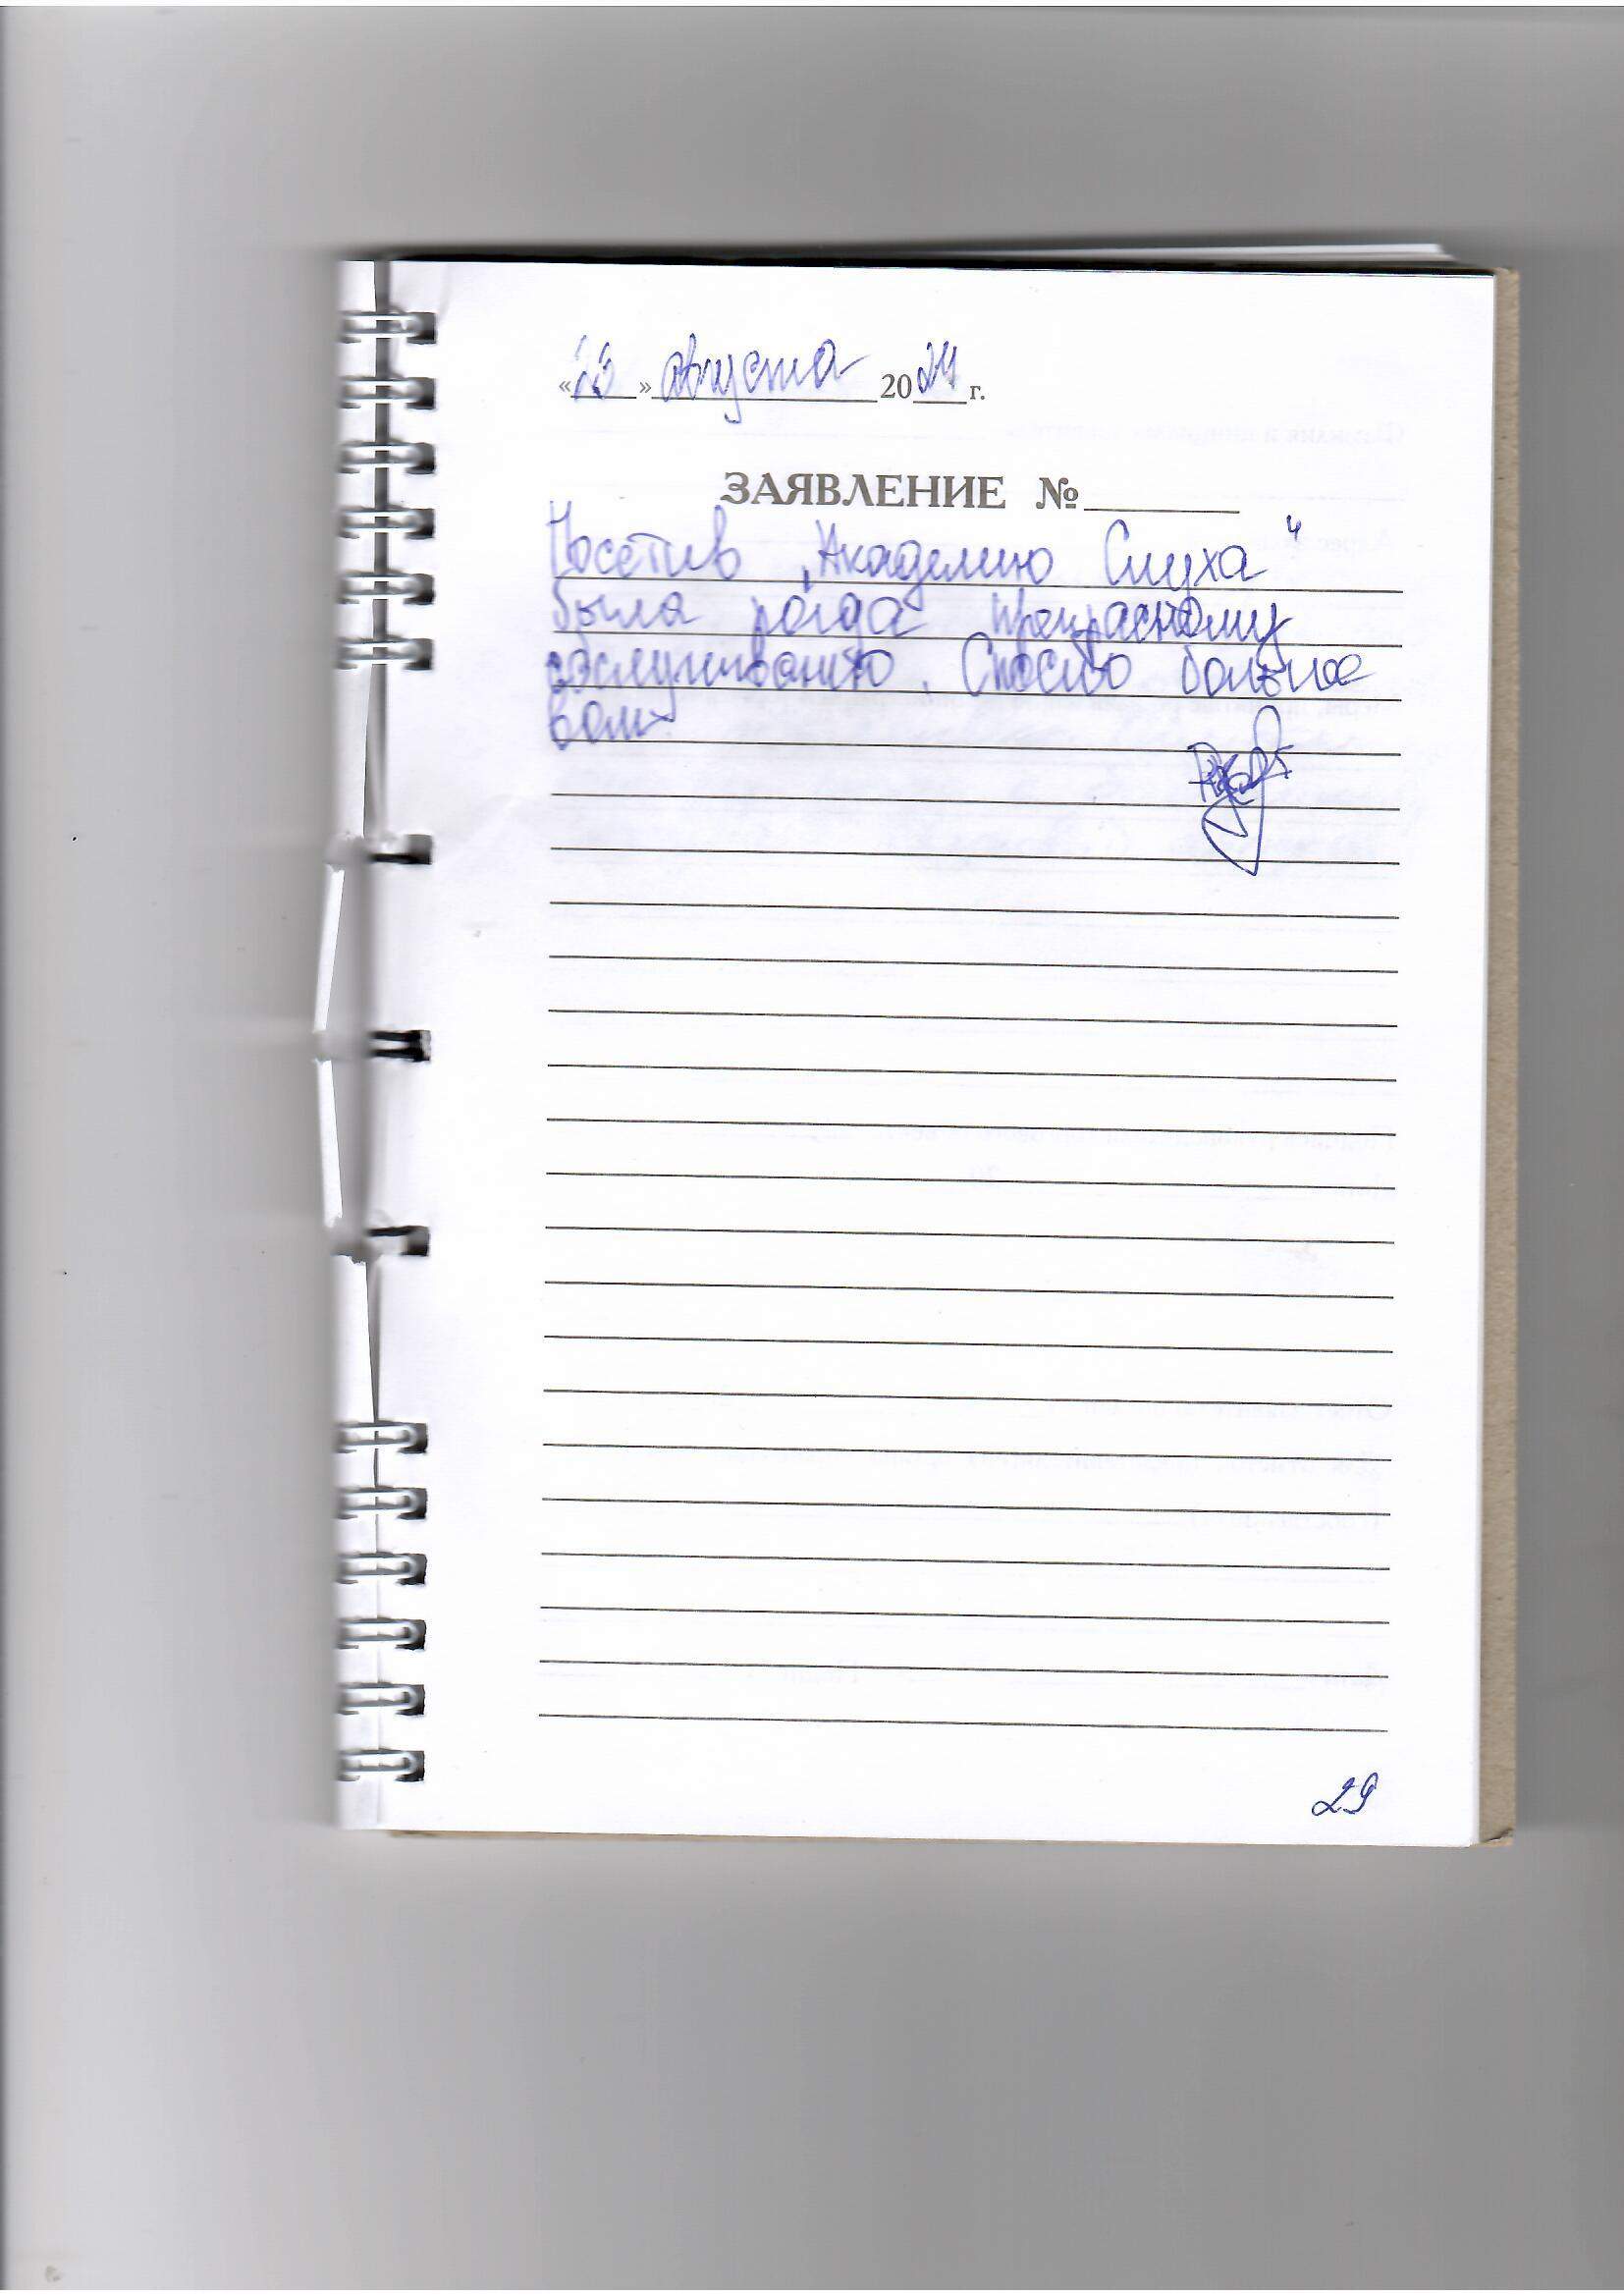 « » августа 2024 г.
ЗАЯВЛЕНИЕ №
Посетив „Академию Слуха"
была рада прекрасному
обслуживанию. Спасибо большое
вам
29